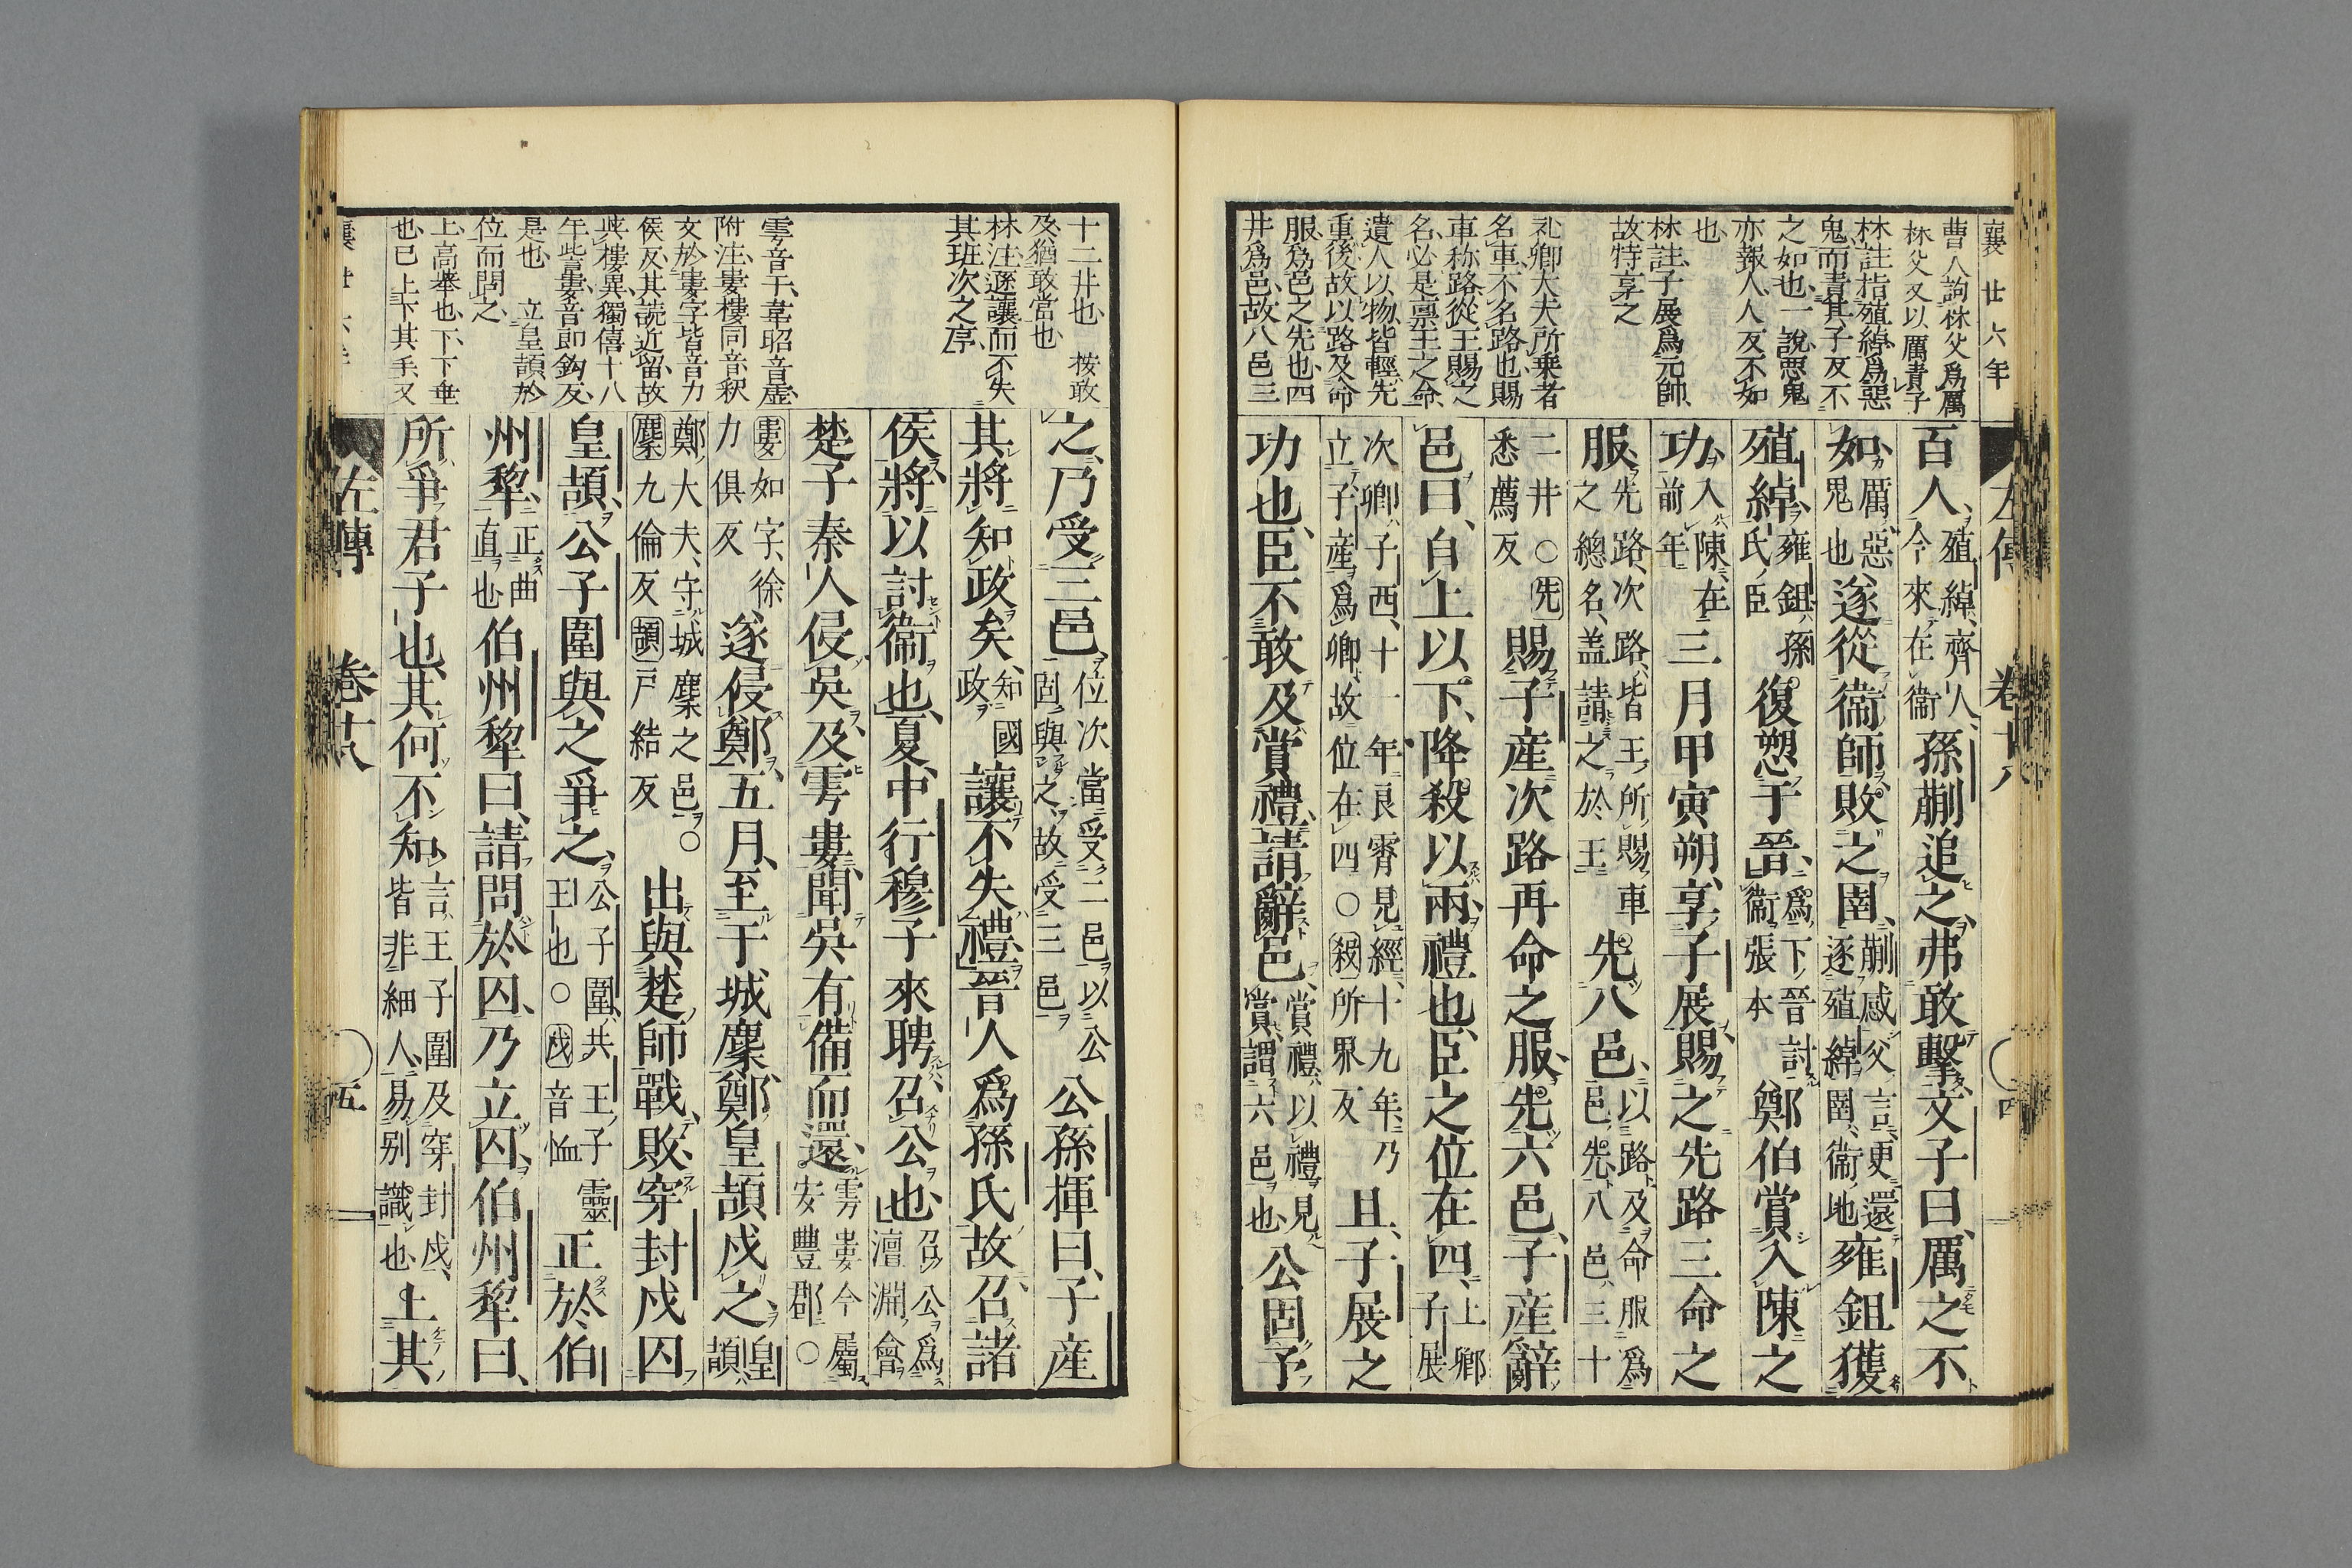 襄廿六年
曹人詢林父爲厲
林父又以厲責子
林註指殖綽爲惡
鬼而責其子反不
之如也一說惡鬼
亦報人人反不如
也
林註子展爲元帥
故特享之
礼卿大夫所乗者
名車不名路也賜
車称路從王賜之
名必是禀王之命
遺人以物皆輕先
重後故以路及命
服爲邑之先也四
井爲邑故八邑三
百人殖綽齊人今來在衞孫蒯追之弗敢擊文子曰厲之不
如厲惡鬼也遂從衞師敗之圉蒯感父言更還逐殖綽圉衞地雍鉏獲
殖綽雍鉏孫氏臣復愬于晉爲下晉討衞張本鄭伯賞入陳之
功入陳在前年三月甲寅朔享子展賜之先路三命之
服先路次路皆王所賜車之總名盖請之於王先八邑以路及命服爲邑先八邑三十
二井○先悉薦反賜子產次路再命之服先六邑子產辭
邑曰自上以下降殺以兩禮也臣之位在四上卿子展
次卿子西十一年良霄見經十九年乃立子產爲卿故位在四○殺所界反且子展之
功也臣不敢及賞禮請辭邑賞禮以禮見賞謂六邑也公固予
左傳 卷十八 四
十二井也 按敢
及猶敢當也
林注遜讓而不失
其班次之序
雩音于韋昭音虛
附注婁樓同音釈
文於婁字皆音力
侯反其読近留故
與樓異獨僖十八
年訾婁音即鉤反
是也 立皇頡於
位而問之
上高舉也下下垂
也已上下其手又
之乃受三邑位次當受二邑以公固與之故受三邑公孫揮曰子產
其將知政矣知國政讓不失禮晉人爲孫氏故召諸
侯將以討衞也夏中行穆子來聘召公也召公爲澶淵會
楚子秦人侵吳及雩婁聞吳有備而還雩婁今屬安豐郡○
婁如字徐力俱反遂侵鄭五月至于城麇鄭皇頡戍之皇頡
鄭大夫守城麇之邑○麇九倫反頡戸結反出與楚師戰敗穿封戌囚
皇頡公子圍與之爭之公子圍共王子靈王也○戌音恤正於伯
州犂正曲直也伯州犂曰請問於囚乃立囚伯州犂曰
所爭君子也其何不知言王子圍及穿封戌皆非細人易別識也上其
左傳 卷十八 五